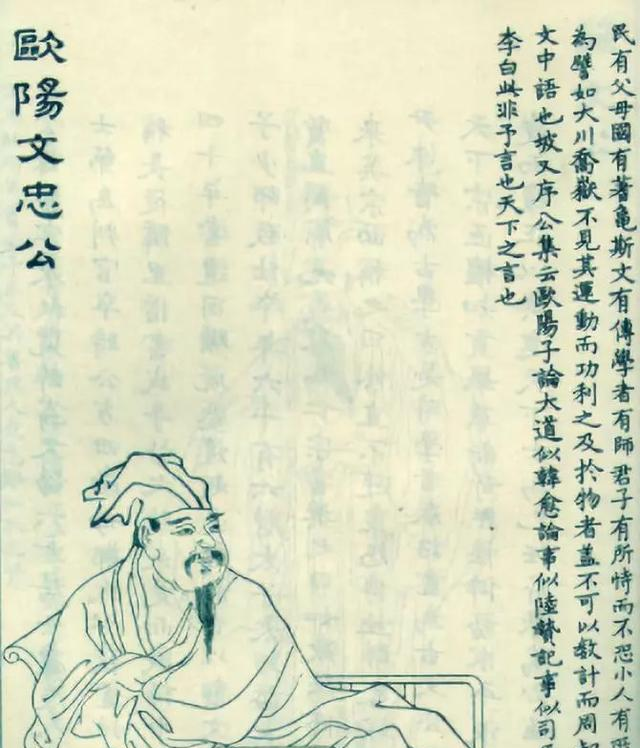 民有父母國有蓍龜斯文有傳學者有師君子有所恃而不恐小人有
為譬如大川喬嶽不見其運動而功利之及於物者蓋不可以數計而周
文中語也坡又序公集云歐陽子論大道似韓愈論事似陸贄記事似司
李白此非予言也天下之言也
歐陽文忠公